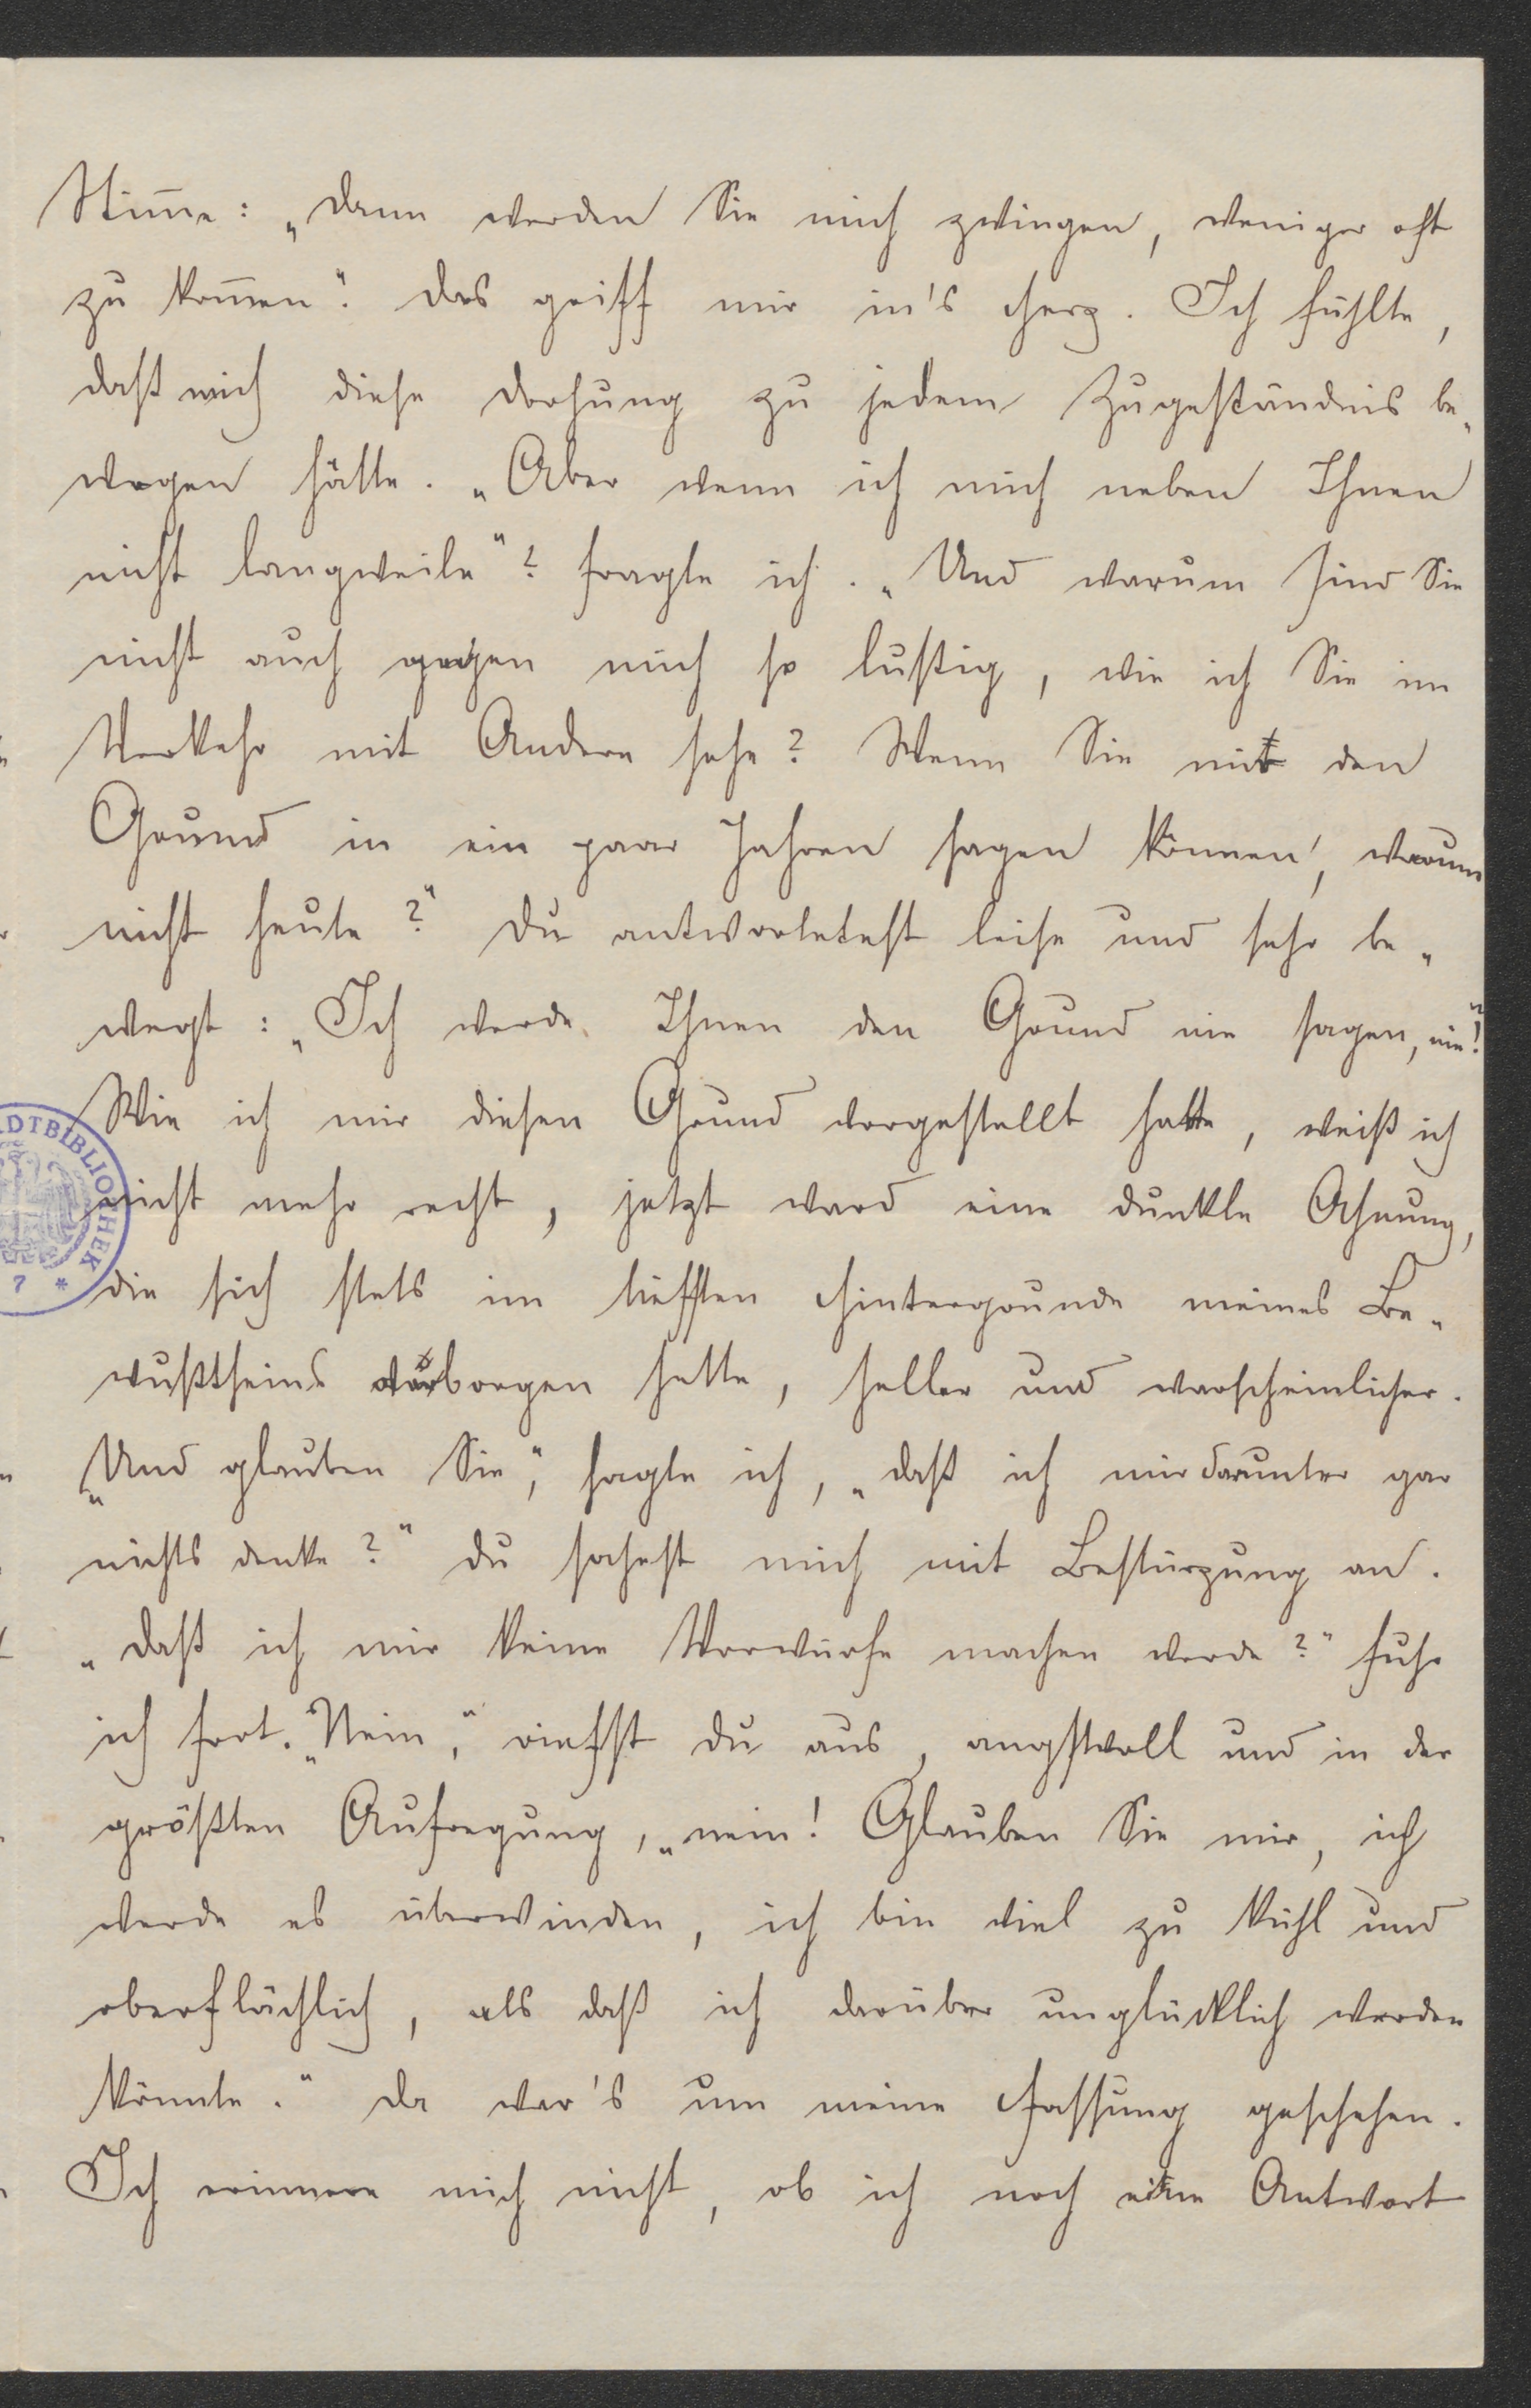 Stim̄e: „Dann werden Sie mich zwingen, weniger oft
zu kom̄en“. Das griff mir in's Herz. Ich fühlte,
daß mich diese Drohung zu jedem Zugeständnis be„
wogen hätte. „Aber wenn ich mich neben Ihnen
nicht langweile“? fragte ich. „Und warum sind Sie
nicht auch gegen mich so lustig, wie ich Sie im
Verkehr mit Andern sehe? Wenn Sie mir den
Grund in ein paar Jahren sagen können, warum
nicht heute?“ Du antwortetest leise und sehr be„
wegt: „Ich werde Ihnen den Grund nie sagen, nie!“
Wie ich mir diesen Grund vorgestellt hatte, weiß ich
nicht mehr recht, jetzt ward eine dunkle Ahnung,
die sich stets im tiefsten Hintergrunde meines Be„
wußtseins verborgen hatte, heller und warscheinlicher.
„Und glauben Sie“, sagte ich, „daß ich mir darunter gar
nichts denke?“ Du sahest mich mit Bestürzung an.
„Daß ich mir keine Vorwürfe machen werde?“ fuhr
ich fort. „Nein,“ riefst du aus, angstvoll und in der
größten Aufregung, „nein! Glauben Sie mir, ich
werde es überwinden, ich bin viel zu kühl und
oberflächlich, als daß ich darüber unglücklich werden
könnte.“ Da war's um meine Fassung geschehen.
Ich erinnere mich nicht, ob ich noch eine Antwort
DTBIBLIOTHEK
7 *